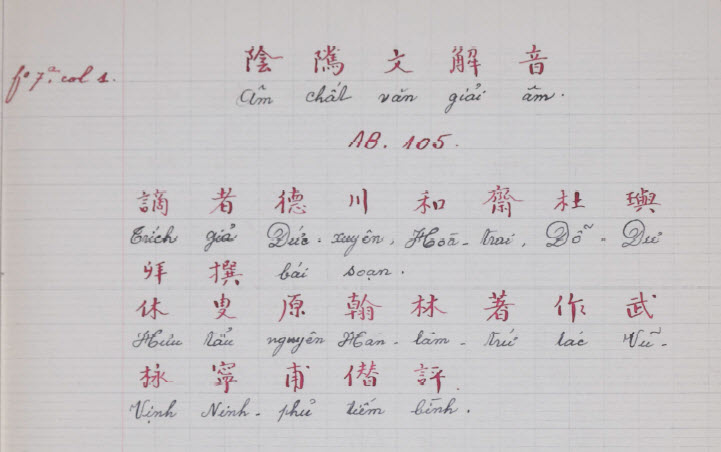 陰隲文解音
fº 7ª. col 1.
Âm chất văn giải âm.
AB. 105.
謫者德川和齋杜璵
Trích giả Đức-xuyên, Hoà-trai, Đỗ-Dư
拜撰 bái soạn.
休叟原翰林著作武
Hưu tẩu nguyên Hàn-lâm-trứ tác Vũ-
拯寧甫僭評
Vịnh Ninh-phủ tiếm bình.